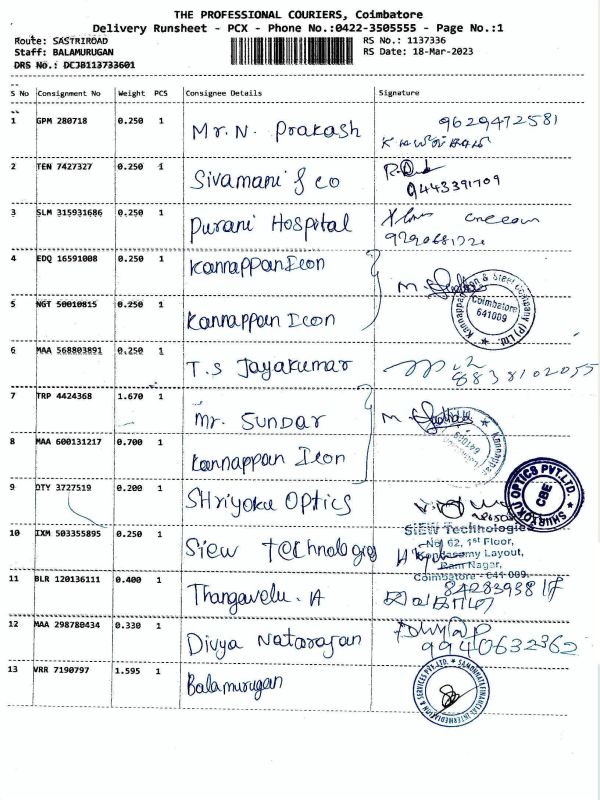 THE PROFESSIONAL COURIERS, Coimbatore
Delivery Runsheet - PCX - Phone No.:0422-3505555 - Page No.:1
Route: SASTRIROAD RS No.: 1137336
Staff: BALAMURUGAN RS Date: 18-Mar-2023
DRS No.: DCJB113733601
S No Consignment No Weight PCS Consignee Details Signature
1 GPM 280718 0.250 1 Mr.N. Prakash 9629472581
2 TEN 7427327 0.250 1 Sivamani & co
9443391709
3 SLM 315931686 0.250 1 Purani Hospital
4 EDQ 16591008 0.250 1 Kannappan Icon
Kannappan & Steel Company (P) Ltd. Coimbatore 641009
5 NGT 50010815 0.250 1 Kannappan Icon
6 MAA 568803891 0.250 1 T.S Jayakumar
8838102055
7 TRP 4424368 1.670 1 Mr. SUNDAR
8 MAA 600131217 0.700 1 Kannappan Icon
9 DTY 3727519 0.200 1 SHriyoku Optics
SHURYOKU OPTICS PVT.LTD. CBE
10 IXM 503355895 0.250 1 Siew technologies
SIEW Technologies
No. 62, 1st Floor,
Kandasamy Layout,
Ram Nagar,
Coimbatore - 641 009.
11 BLR 120136111 0.400 1 Thangavelu. A
12 MAA 298780434 0.330 1 Divya Natarajan
9940632362
13 VRR 7190797 1.595 1 Balamurugan